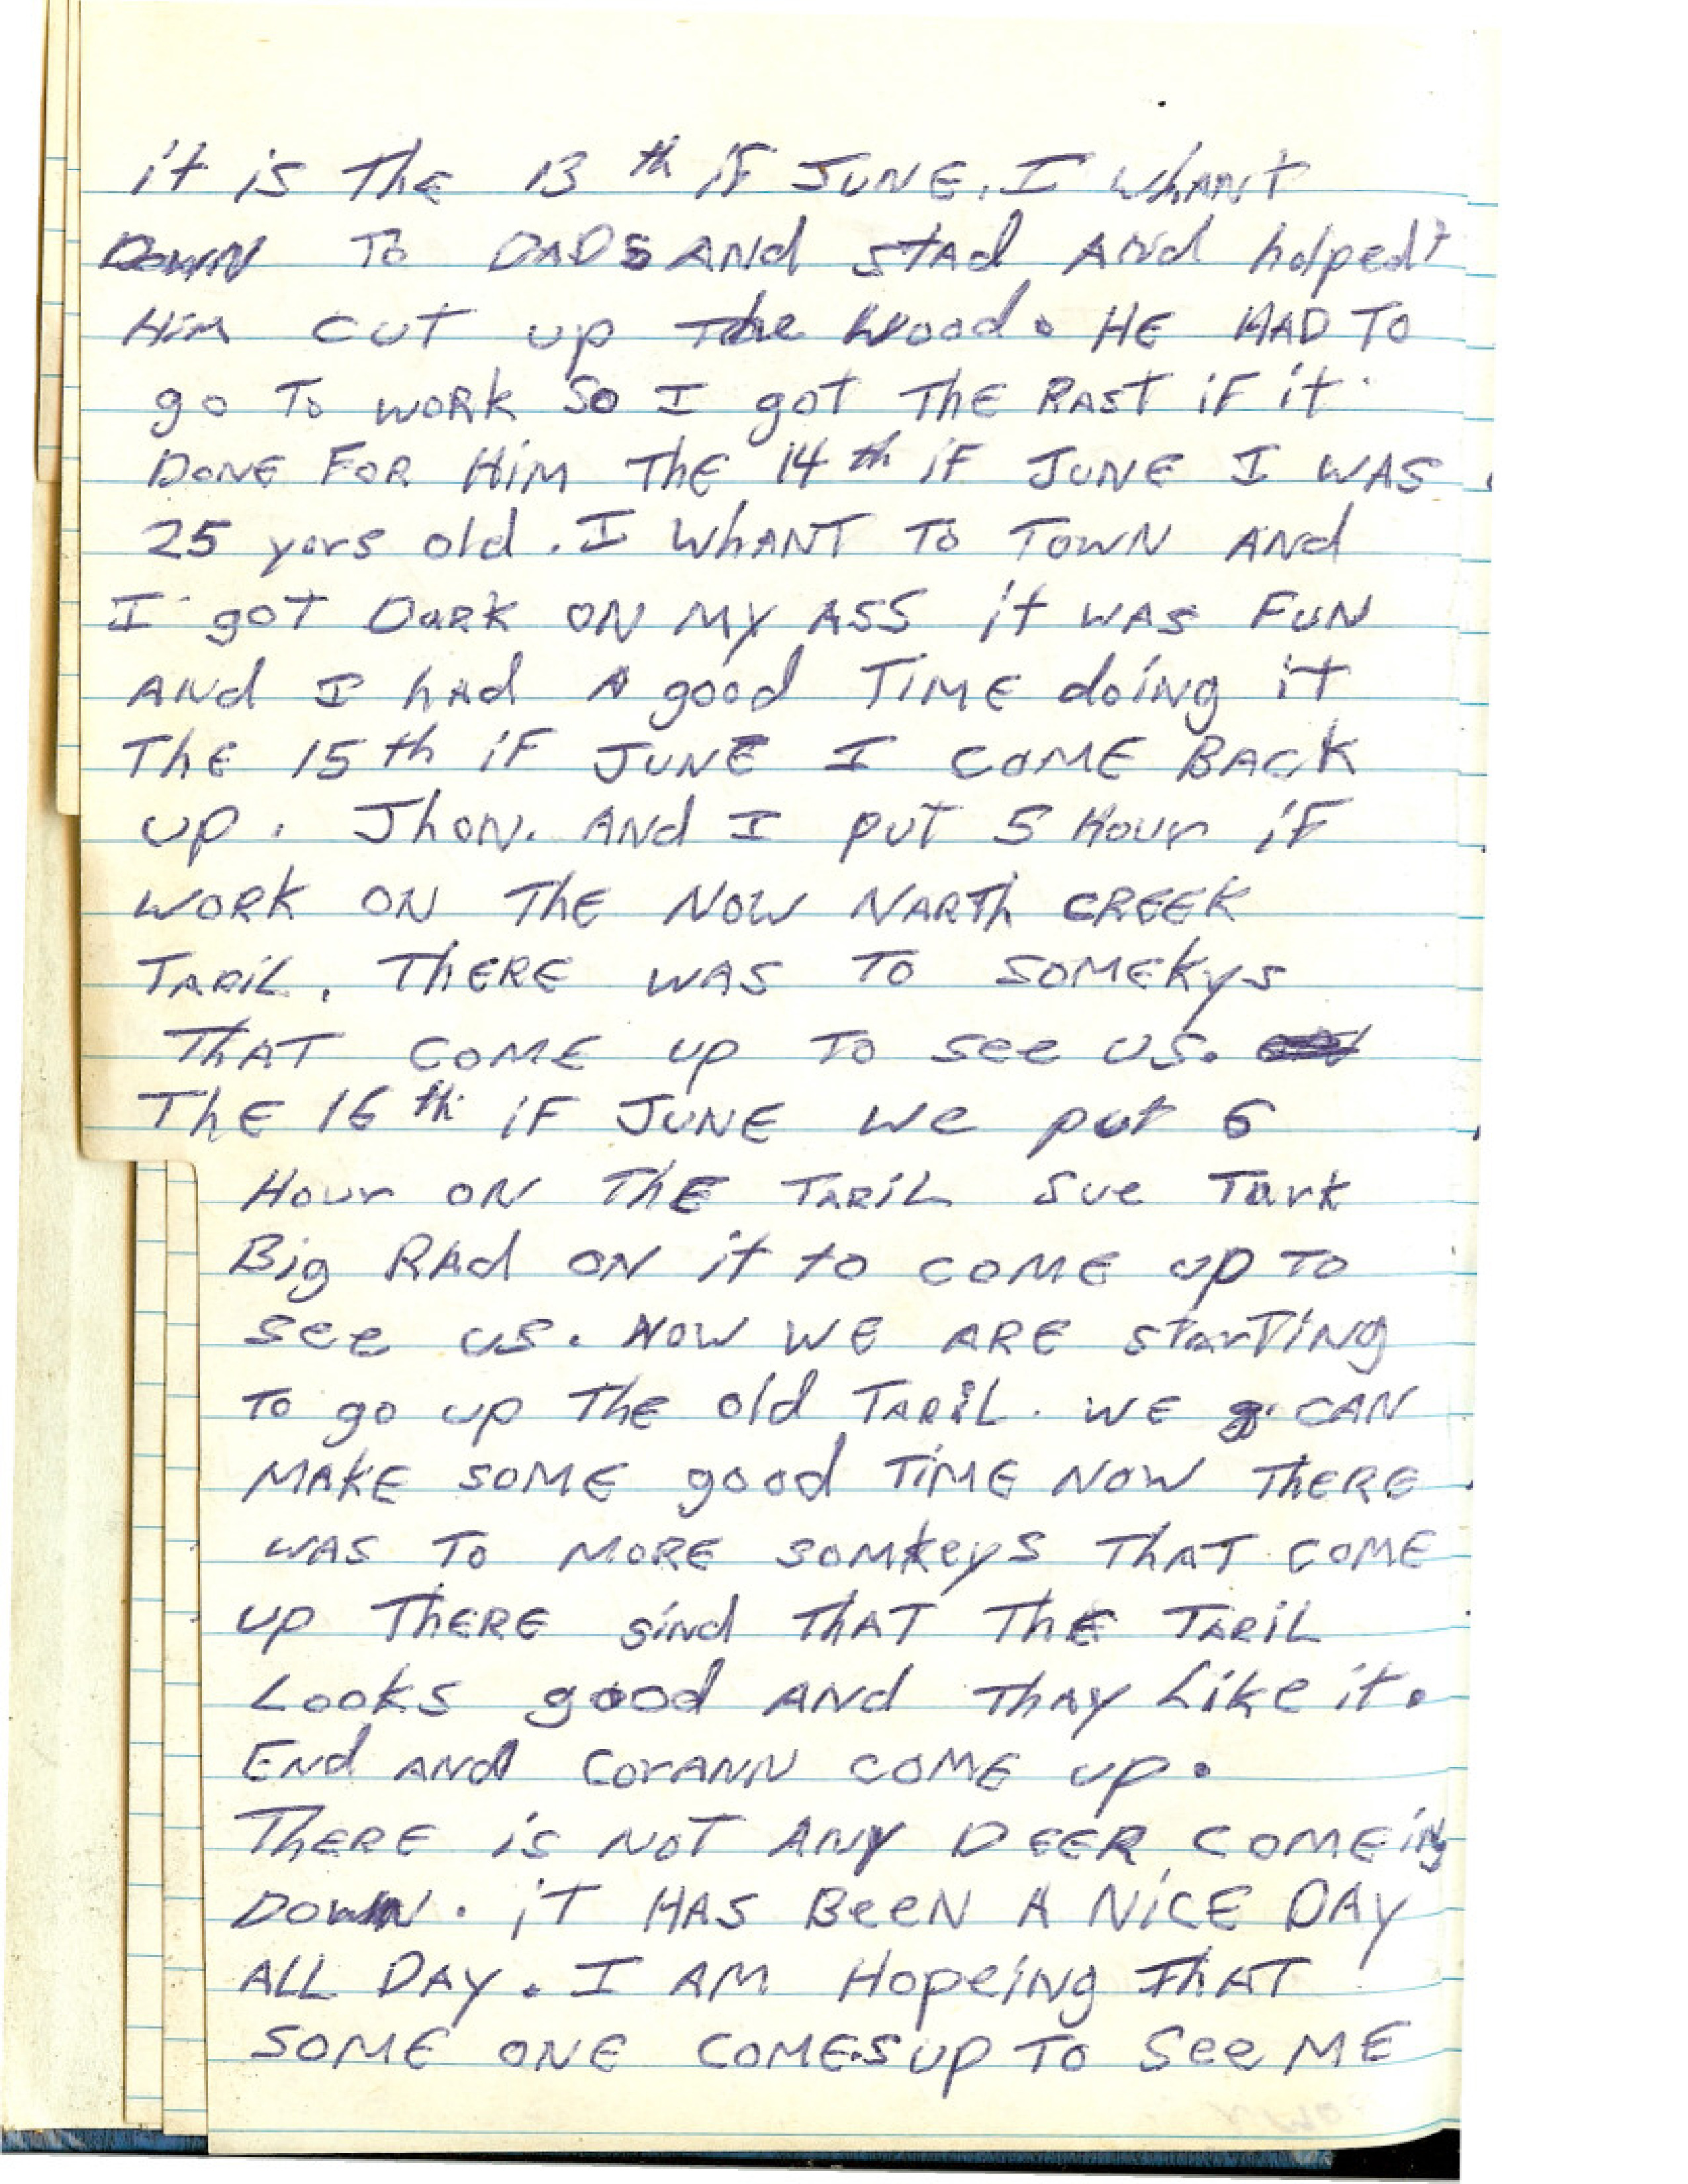 it is The 13th iF JUNE. I WhANT
DOWN TO DADS ANd stad ANd halped
HiM CUT up The Wood. HE HAD TO
go To WORK So I got THE RAST iF it
DONE FOR HiM THE 14th iF JUNE I WAS
25 yers old. I WhANT To TOWN ANd
I got DaRK ON MY ASS it WAS FUN
ANd I hAd A good TiME doing it
ThE 15th iF JUNE I COME BACK
up. Jhon. ANd I put 5 Hour iF
WORK ON THE NOW NARTh CREEK
TARiL. THERE WAS TO SOMEKys
THAT COME up To see us.
ThE 16th iF JUNE we put 6
Hour ON THE TARiL Sue Tark
Big RAd ON it to COME up To
see us. NOW WE ARE starTiNg
To go up THE old TARiL. WE CAN
MAKE SOME good TiME NOW THERE
WAS To MORE somkeys THAT COME
up THERE sind THAT THE TARiL
Looks good ANd THAY Like it.
ENd ANd CorANN COME up.
THERE is NOT ANY DEER COMEiNg
DOWN. iT HAS BeeN A NiCE DAY
ALL DAY. I AM HopeiNg THAT
SOME ONE COMES up To See ME